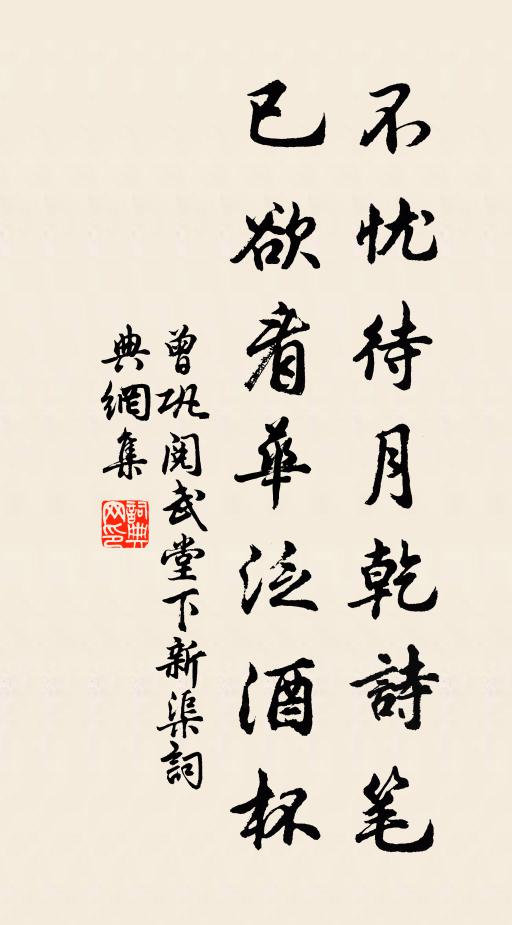 不忧待月乾詩笔
已欲看華泛酒杯
曾巩阅武堂下新渠詞
典網集
詞典网印